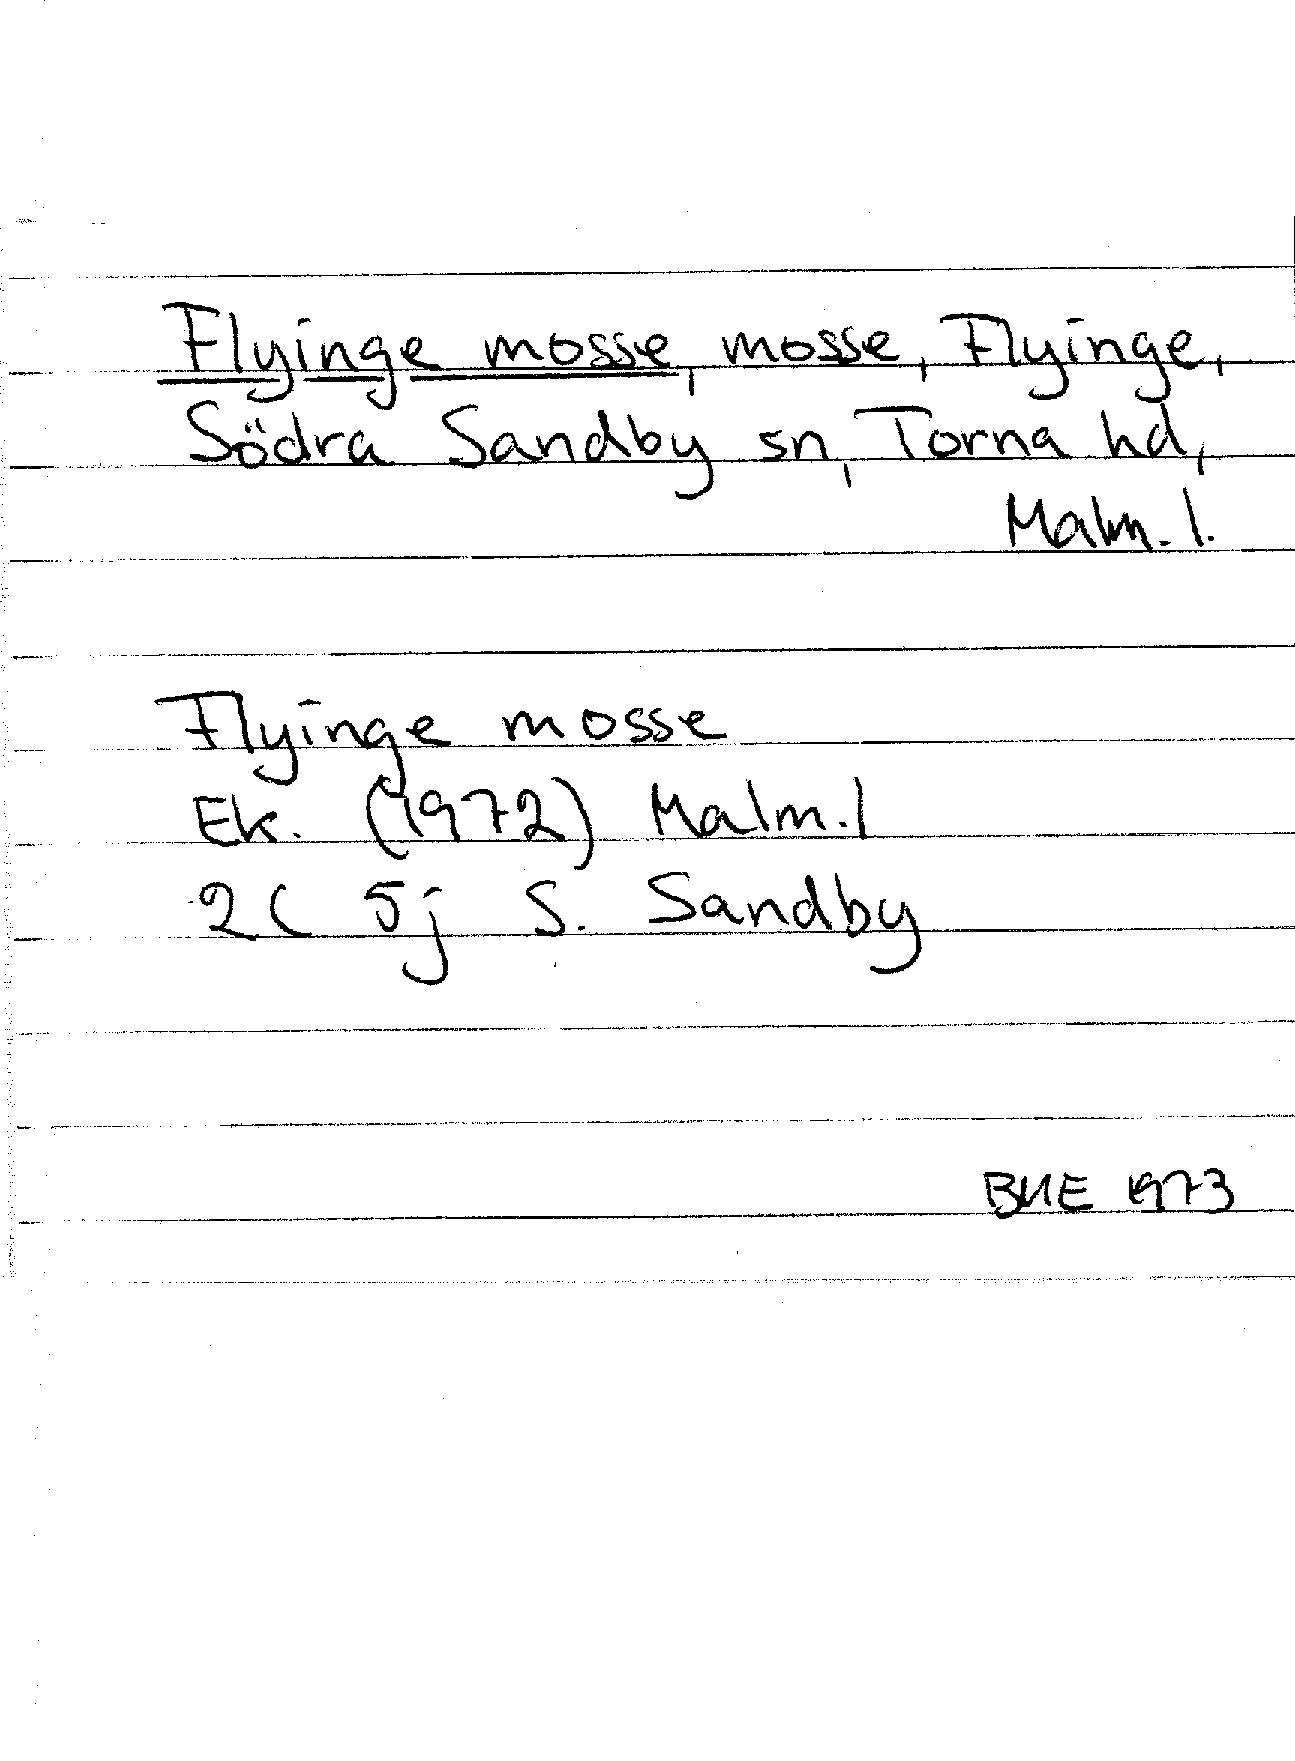 Flyinge mosse, mosse, Flyinge,
Södra Sandby sn, Torna hd,
Malm. l.
Flyinge mosse
Ek. (1972) Malm. l
2C 5j S. Sandby
BME 1973